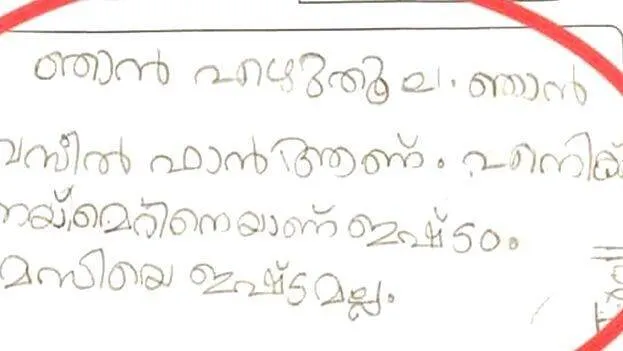 ഞാൻ എഴുതൂല. ഞാൻ
വസീൽ ഫാൻ ആണ്. എനിക്ക്
നയ്മെറിനെയാണ് ഇഷ്ടം.
മസിയെ ഇഷ്ടമല്ല.